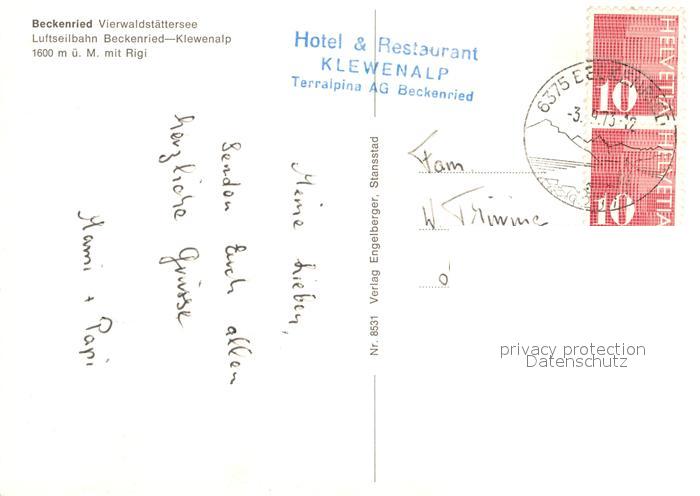 Beckenried Vierwaldstättersee
Luftseilbahn Beckenried—Klewenalp
1600 m ü. M. mit Rigi
Hotel & Restaurant
KLEWENALP
Terralpina AG Beckenried
Meine Lieben,
Senden Euch allen
herzliche Grüsse
Mami + Papi
Nr. 8531 Verlag Engelberger, Stansstad
Fam.
W
HELVETIA
10
HELVETIA
10
6375
73-12
privacy protection
Datenschutz